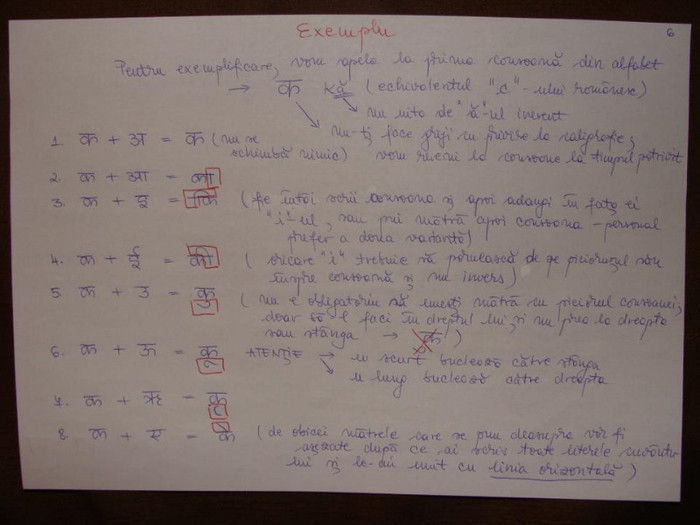 Exemplu
6
Pentru exemplificare, vom apela la prima consoană din alfabet
→ क Kă (echivalentul "c"-ului românesc)
nu uita de "ă"-ul inerent
nu-ţi face griji cu privire la caligrafie;
1. क + अ = क (nu se
schimbă nimic) vom reveni la consoane la timpul potrivit
2. क + आ = का
3. क + इ = कि (fie întâi scrii consoana şi apoi adaugi în faţa ei
"i"-ul, sau pui mătră apoi consoana - personal
prefer a doua variantă)
4. क + ई = की (oricare "i" trebuie să pornească de pe picioruşul său
înspre consoană şi nu invers)
5 क + उ = कु (nu e obligatoriu să uneşti mătră cu piciorul consoanei;
doar să-l faci în dreptul lui, şi nu prea la dreapta
sau stânga → क !)
6. क + ऊ = कू ATENŢIE → u scurt buclează către stânga
u lung buclează către dreapta
7. क + ऋ = कृ
8. क + ए = के (de obicei mătrele care se pun deasupra vor fi
aşezate după ce ai scris toate literele cuvântu-
lui şi le-ai unit cu linia orizontală)